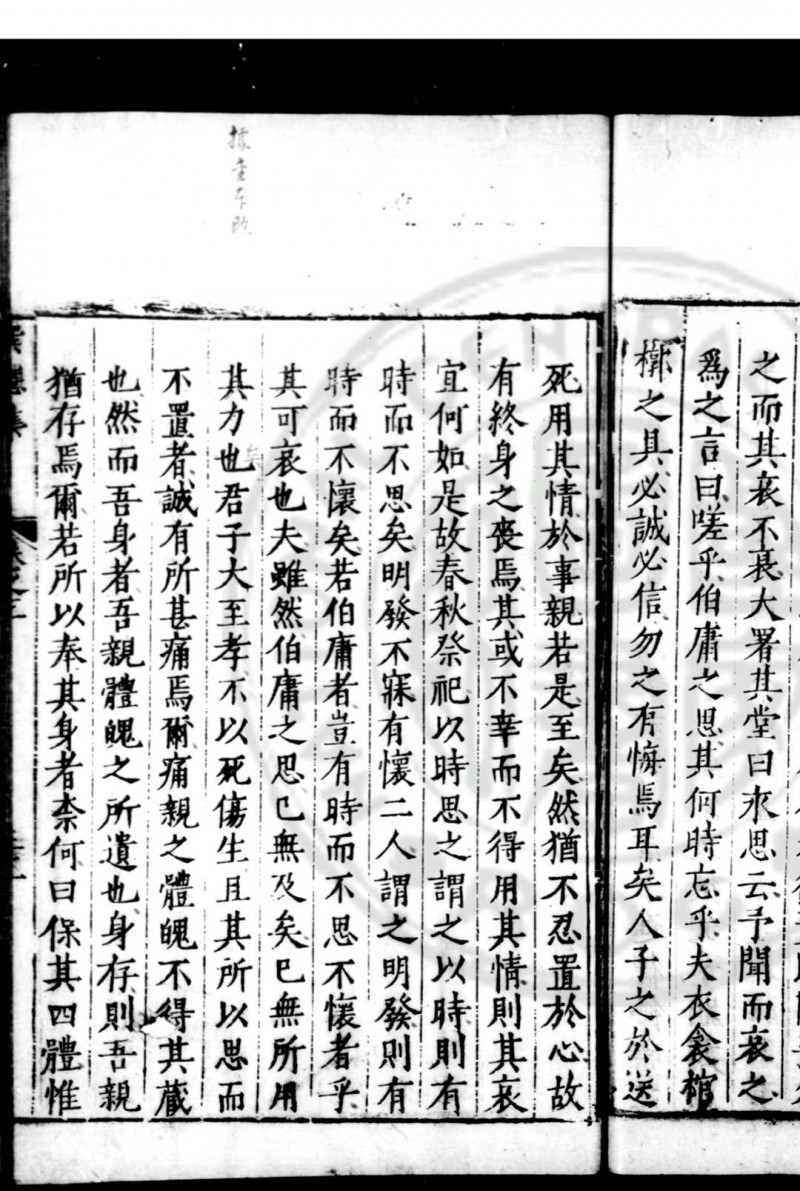 之而其哀不衰大署其堂曰永思云予聞而哀之
爲之言曰嗟乎伯庸之思其何時忘乎夫衣衾棺
槨之具必誠必信勿之有悔焉耳矣人子之於送
死用其情於事親若是至矣然猶不忍置於心故
有終身之喪焉其或不幸而不得用其情則其哀
宜何如是故春秋祭祀以時思之謂之以時則有
時而不思矣明發不寐有懷二人謂之明發則有
時而不懷矣若伯庸者豈有時而不思不懷者乎
其可哀也夫雖然伯庸之思已無及矣已無所用
其力也君子大至孝不以死傷生且其所以思而
不置者誠有所甚痛焉爾痛親之體魄不得其藏
也然而吾身者吾親體魄之所遺也身存則吾親
猶存焉爾若所以奉其身者柰何曰保其四體惟
矣